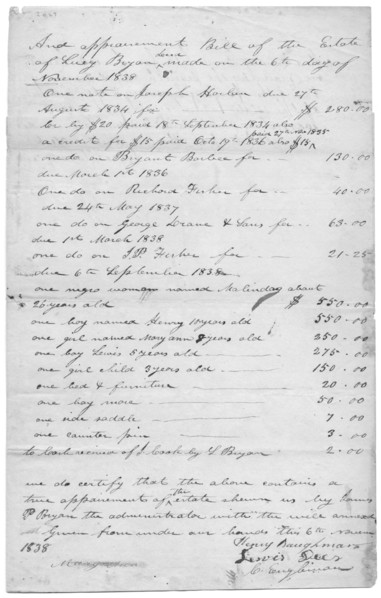 And appraisement Bill of the Estate
of Lucy Bryan made on the 6th day of
November 1838
One note on Joseph Harben due 27th
August 1834 for $ 280.00
cr by $20 paid 18th September 1834 also
paid 27th 1835
a credit for $15 paid Octo 19th 1836 also $15
one do on Bryant Barbee for 130.00
due March 1st 1836
One do on Richard Fisher for 40.00
due 24th May 1837
one do on George Drane & for 63.00
due 1st March 1838
one do on Fisher for 21.25
due 6th September 1838
one negro woman named Malinday about
26 years old $ 550.00
one boy named Henry 10 years old 550.00
one girl named Mary ann years old 250.00
one boy Lewis 5 years old 275.00
one girl child 3 years old 150.00
one bed & furniture 20.00
one bay mare 50.00
one side saddle 7.00
one counter pin 3.00
to cash by L Bryan 2.00
we do certify that the above contains a
true appraisement of the estate shewn us by
P Bryan the administrator with the will annexed
Given from under our hands this 6th
1838
Henry Baughman
Lewis Dees